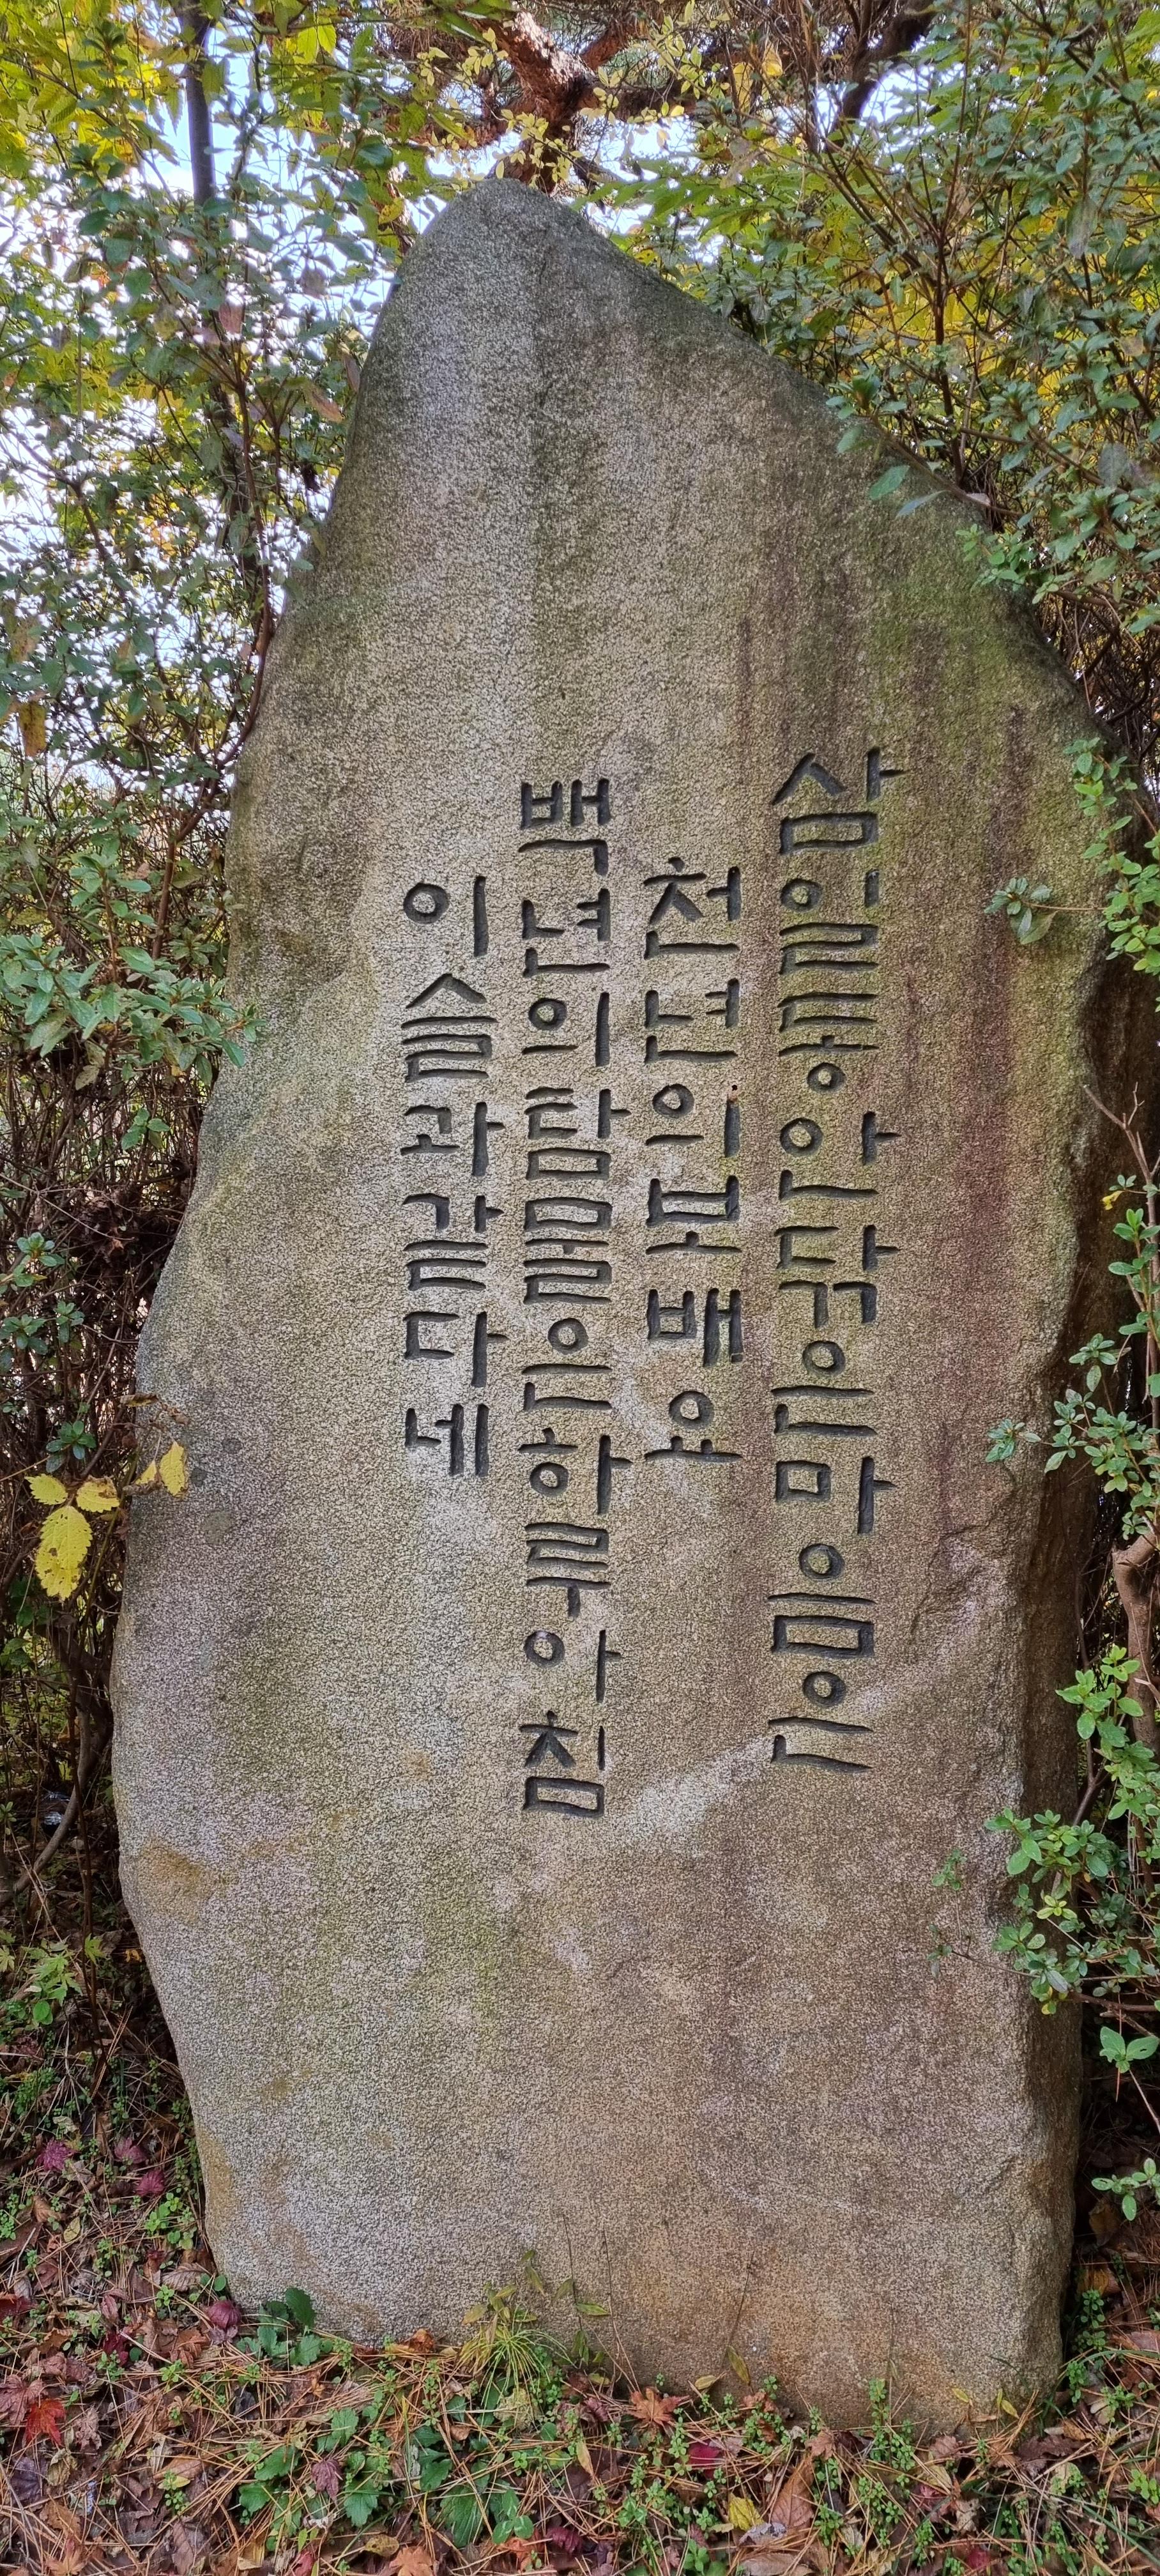 삼일동안닦은마음은
천년의보배요
백년의탐물은하루아침
이슬과같다네